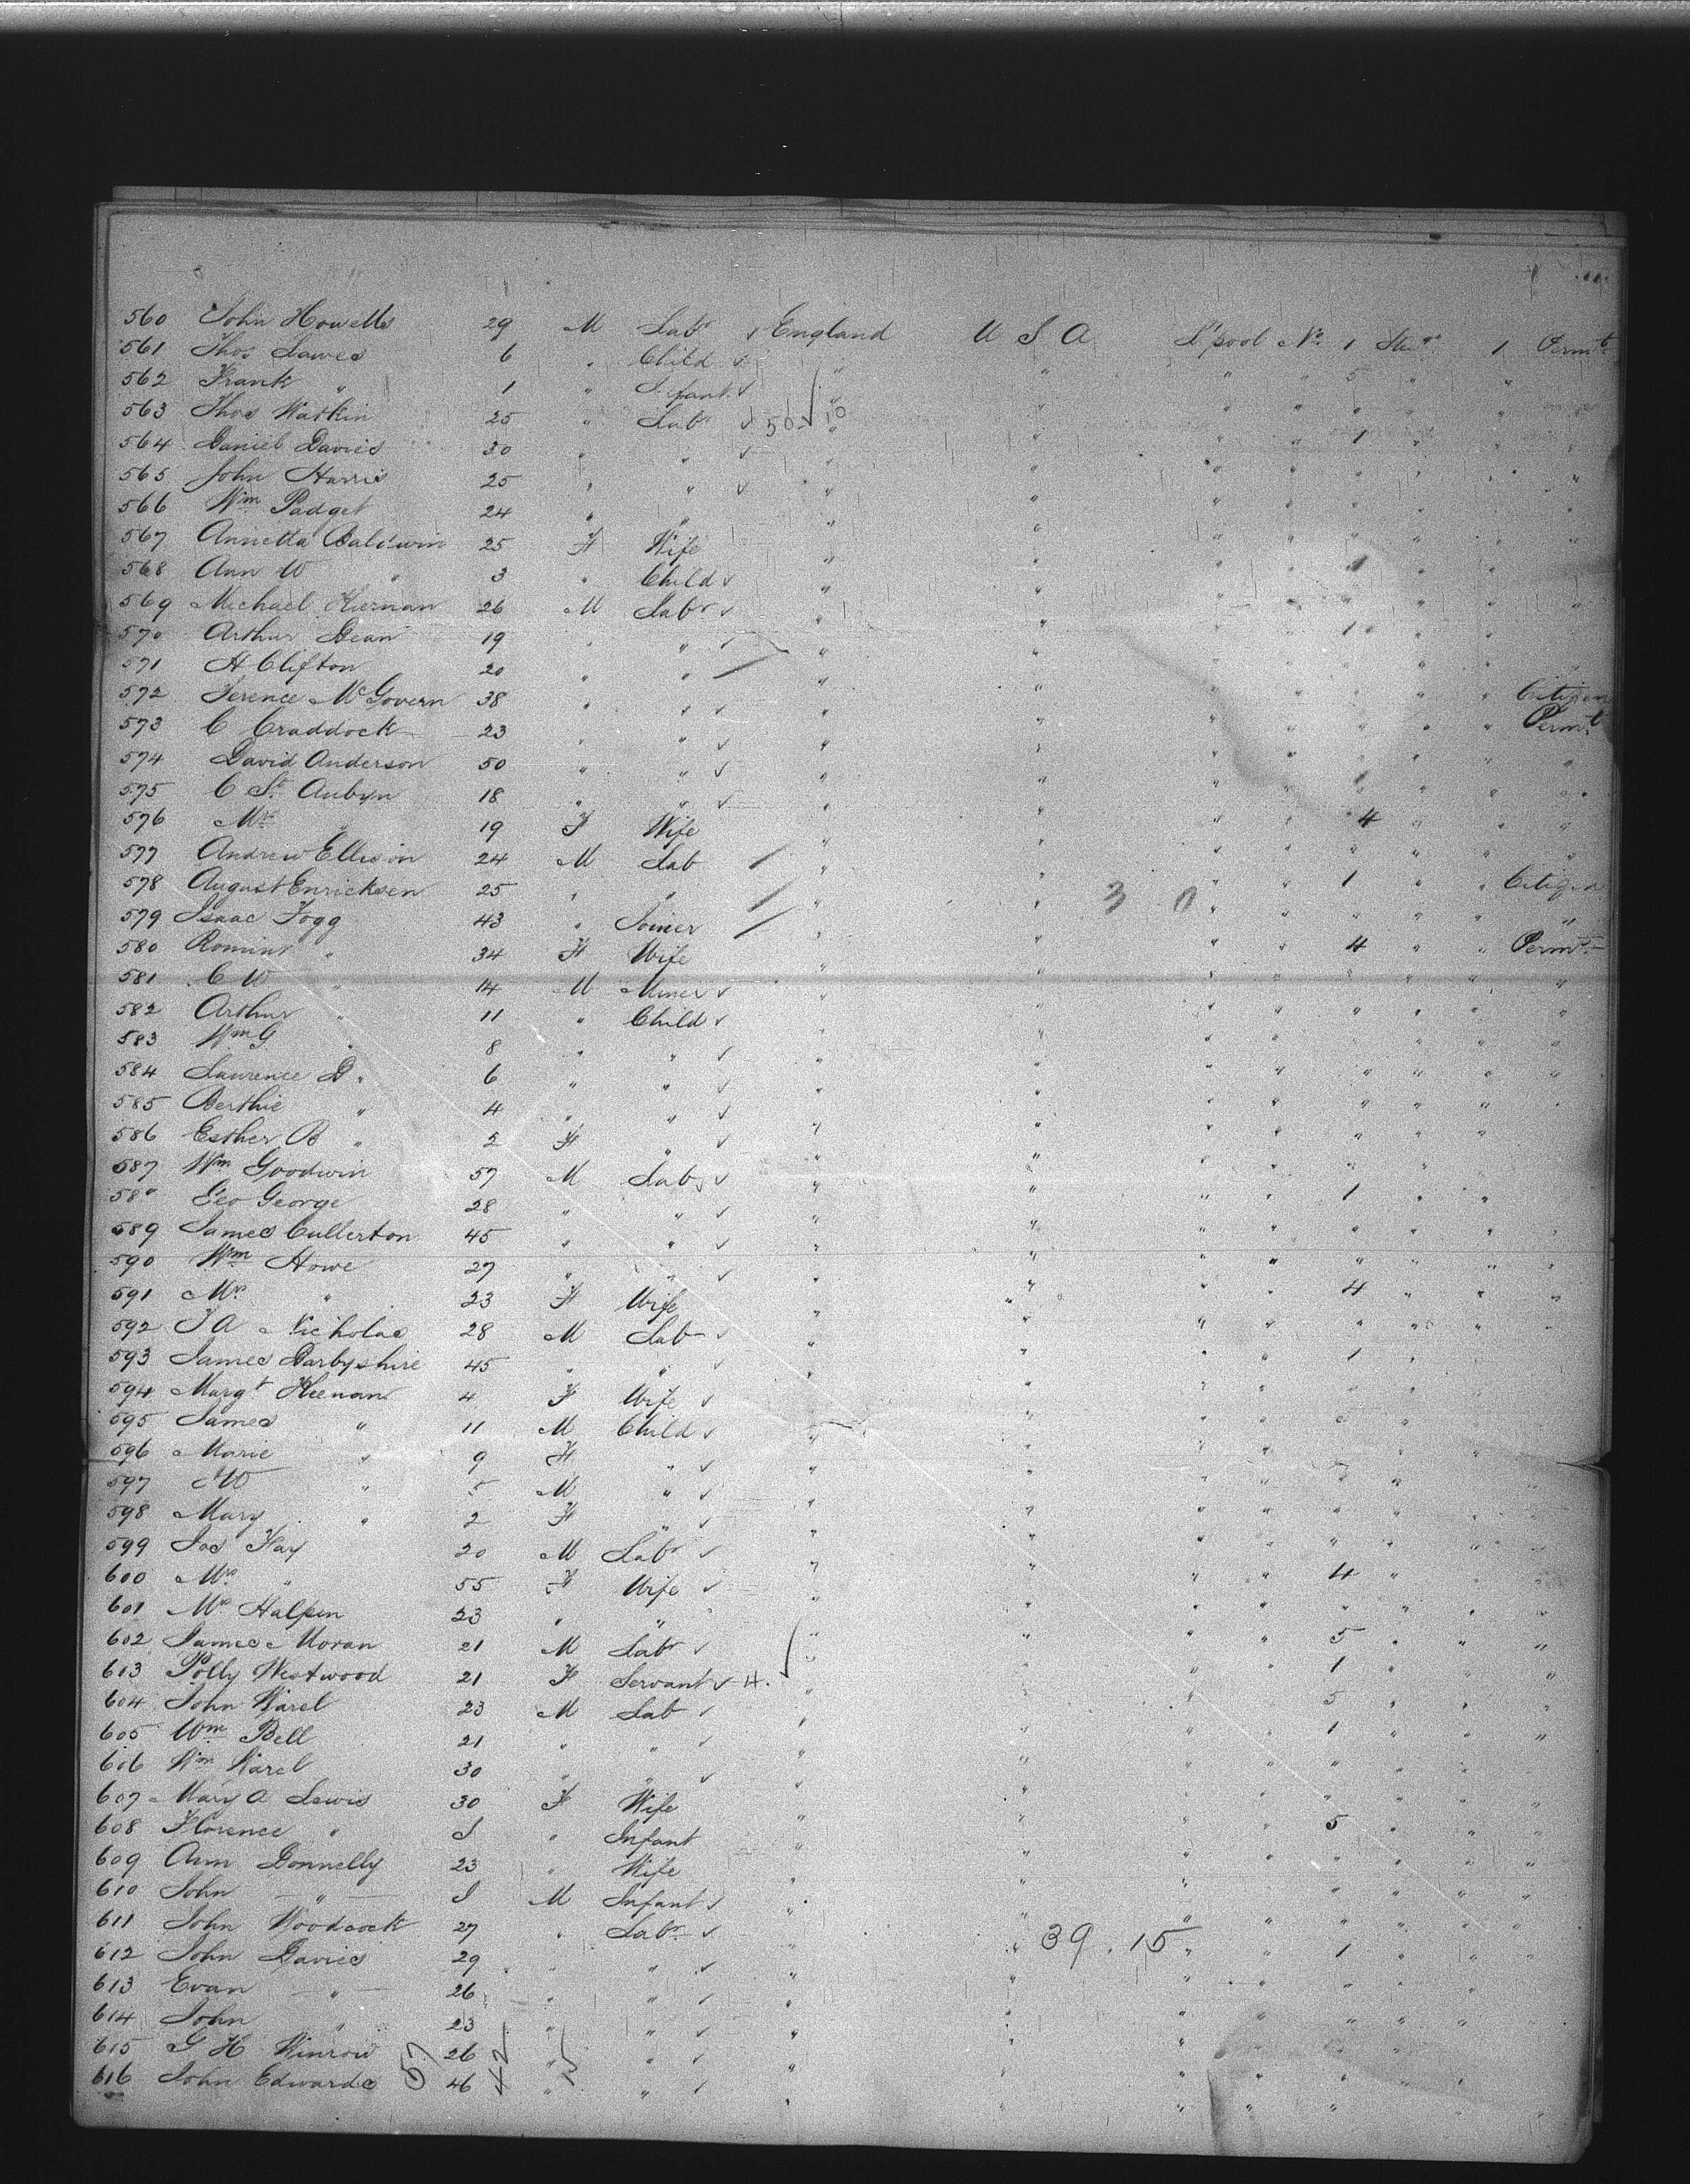 560 John Howells 29 M Labr England U S A L'pool No. 1 Ste'ge 1 Permt
561 Thos Lawes 6 " Child " " " " 5 " "
562 Frank " 1 " Infant " " " " " "
563 Thos Watkin 25 " Labr 50 10 " " " " 1 " "
564 Daniel Davies 30 " " " " " " " " "
565 John Harris 25 " " " " " " " " "
566 Wm Padget 24 " " " " " " " " "
567 Annetta Baldwin 25 F Wife " " " " " "
568 Ann W " 3 " Child " " " " " "
569 Michael Kiernan 26 M Labr " " " " 1 " "
570 Arthur Dean 19 " " " " " " " "
571 H Clifton 20 " " " " " " " "
572 Terence McGovern 38 " " " " " " " " Citizen
573 C Craddock 23 " " " " " " " " Permt
574 David Anderson 50 " " " " " " " " "
575 C St. Aubyn 18 " " " " " " 1 " "
576 Mrs " 19 F Wife " " " " 4 " "
577 Andrew Ellison 24 M Lab " " " " " " "
578 August Enricksen 25 " " " 3 0 " " 1 " " Citizen
579 Isaac Fogg 43 " Joiner " " " " " " "
580 " 34 F Wife " " " " 4 " " Permt
581 C W " 14 M Miner " " " " " " "
582 Arthur " 11 " Child " " " " " " "
583 Wm G " 8 " " " " " " " " "
584 Laurence D " 6 " " " " " " " " "
585 Berthie " 4 " " " " " " " " "
586 Esther B " 2 F " " " " " " " "
587 Wm Goodwin 57 M Lab " " " " " "
58 Geo George 28 " " " " " " 1 " "
589 James Cullerton 45 " " " " " " " " "
590 Wm Howe 27 " " " " " " " " "
591 Mrs " 23 F Wife " " " " 4 " "
592 J A Nicholas 28 M Lab " " " " " " "
593 James Darbyshire 45 " " " " " " 1 "
594 Margt Keenan 4 F Wife " " " " " "
595 James " 11 M Child " " " " " "
596 Marie " 9 F " " " " " "
597 " 5 M " " " " " "
598 Mary " 2 F " " " " " "
599 Jos Kay 20 M Labr " " " " " "
600 Mrs " 55 F Wife " " " " 4 "
601 Mrs Halpen 23 " " " " " " " "
602 James Moran 21 M Labr " " " " 5 " "
603 Polly Westwood 21 F Servant 4. " " " " 1 " "
604 John 23 M Lab " " " " 5 " "
605 Wm Bell 21 " " " " " " 1 " "
606 Wm 30 " " " " " " " "
607 Mary A Lewis 30 F Wife " " " " " "
608 Florence " I " Infant " " " " 5 " "
609 Ann Donnelly 23 " Wife " " " " " "
610 John " I M Infant " " " " " "
611 John Woodcock 27 " Labr " " " " " "
612 John Davies 29 " " " 39.15 " " 1 " "
613 Evan " 26 " " " " " " " "
614 John " 23 " " " " " " " "
615 G H Winrow 26 " " " " " " "
616 John Edwards 46 " " " " " " "
57 42